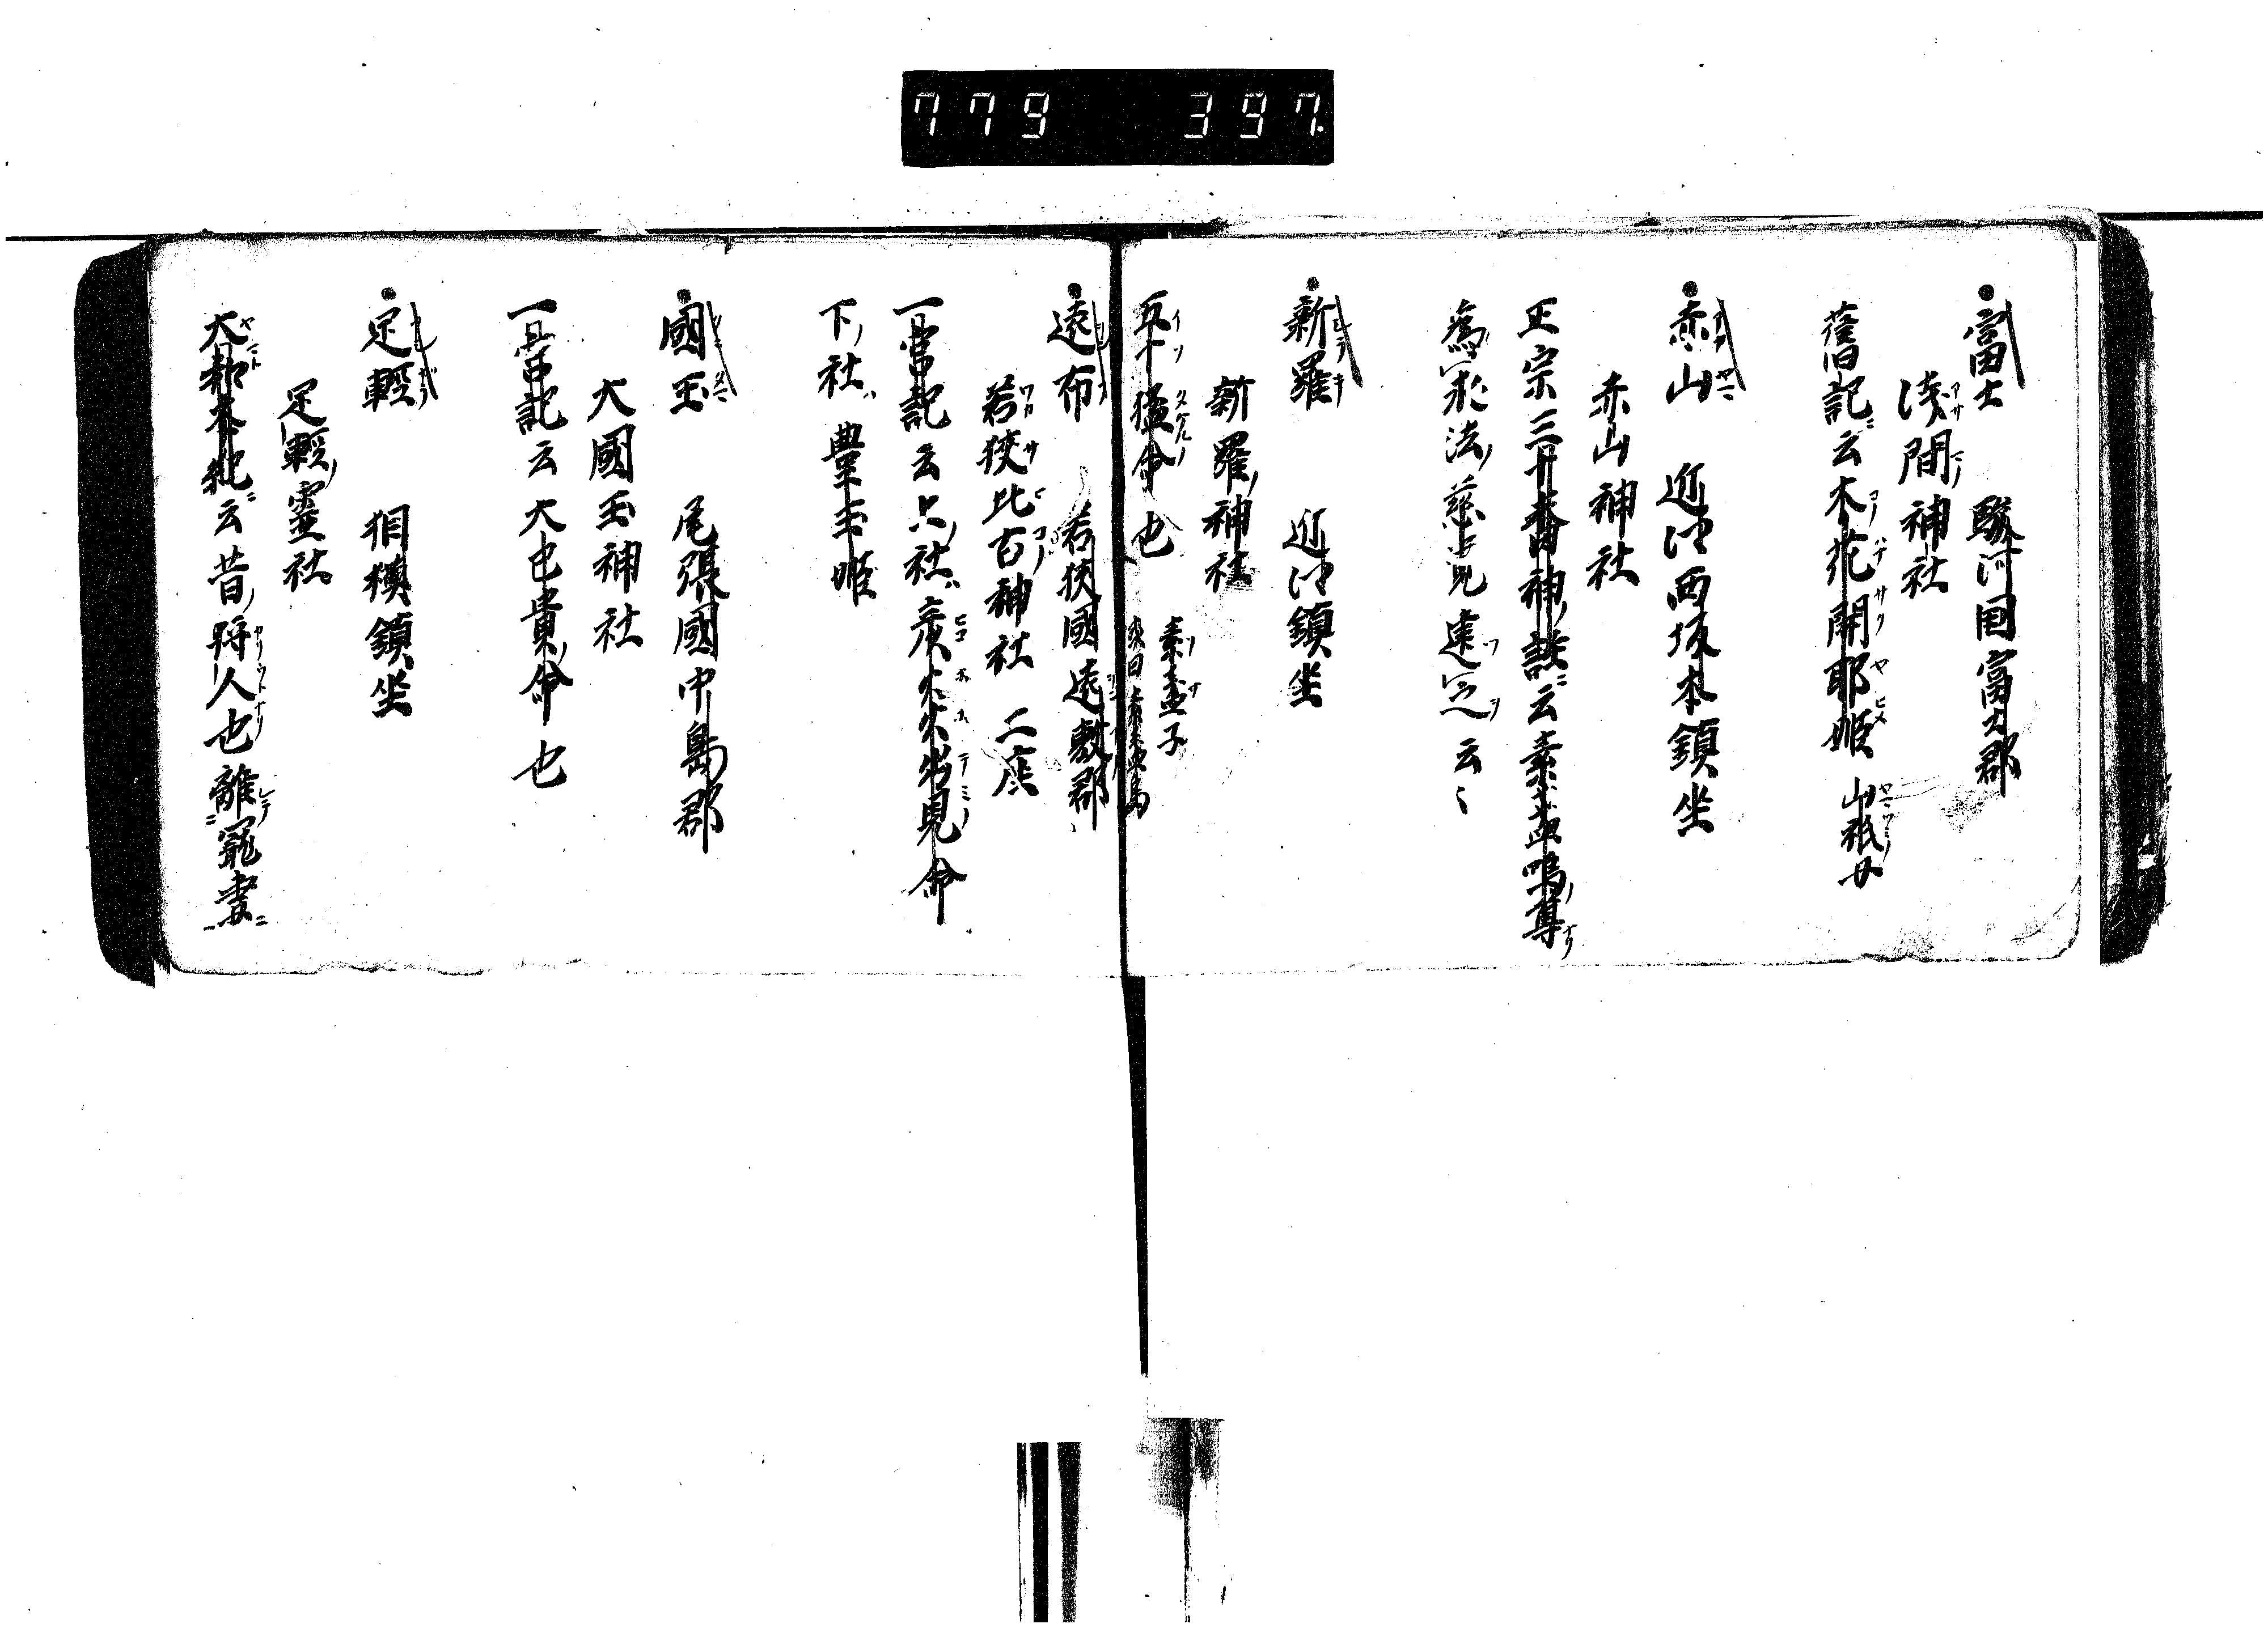 779 397.
富士 駿河国富士郡
浅間神社
舊記云木花開耶姫 山祇女
赤山 近江西坂本鎮坐
赤山神社
正宗三十番神註云素盞嗚尊
為求法慈覚遷之云々
新羅 近江鎮坐
新羅神社
五十猛命也 素盞子
遠布 若狭國遠敷郡
若狭比古神社 二座
一宮記云上社彦火火出見命
下社豊玉姫
國玉 尾張國中島郡
大國玉神社
一宮記云大己貴命也
足輕 相模鎮坐
足輕靈社
大和本紀云昔 狩人也離寵妻